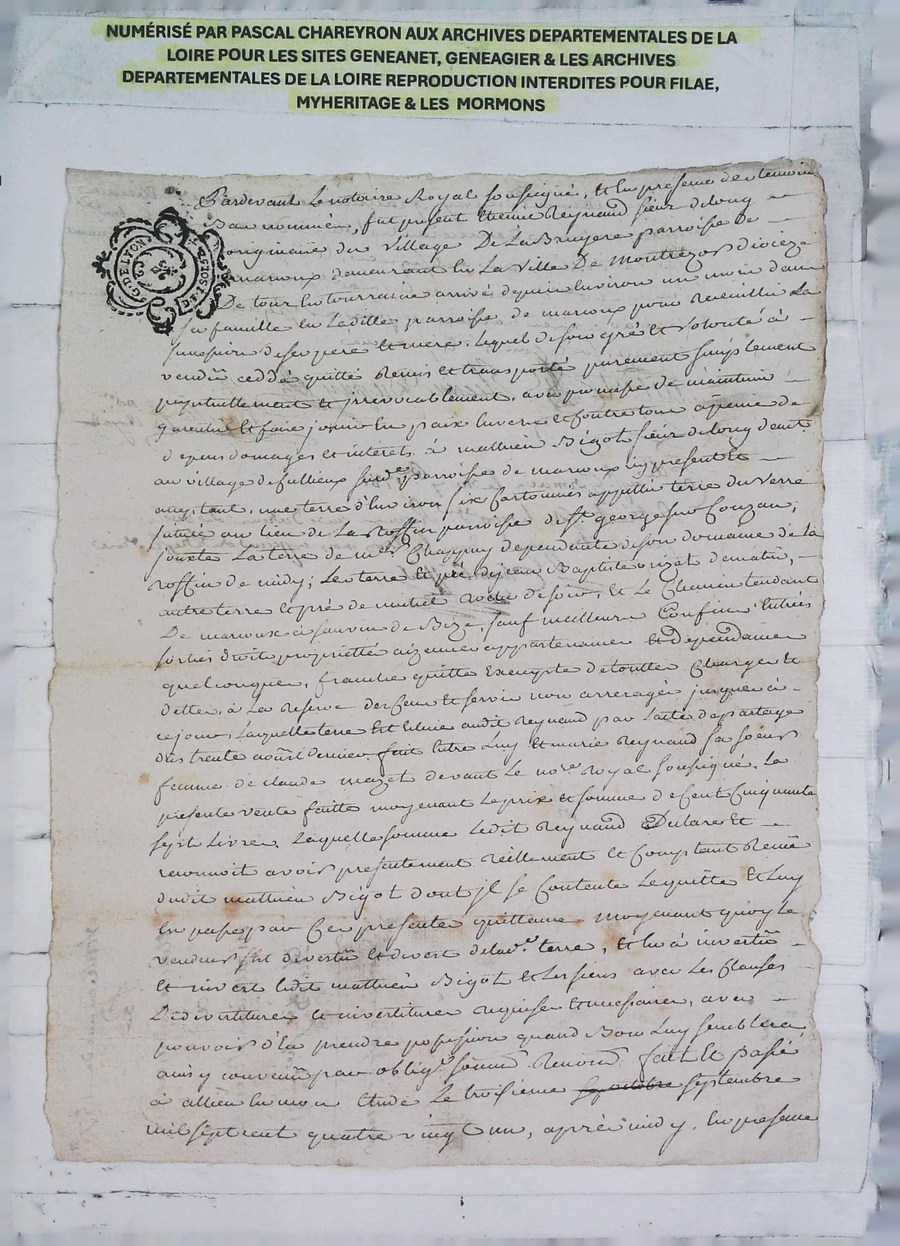 NUMÉRISÉ PAR PASCAL CHAREYRON AUX ARCHIVES DEPARTEMENTALES DE LA
LOIRE POUR LES SITES GENEANET, GENEAGIER & LES ARCHIVES
DEPARTEMENTALES DE LA LOIRE REPRODUCTION INTERDITES POUR FILAE,
MYHERITAGE & LES MORMONS
G. DE LYON
Pardevant Le notaire Royal soussigné, et En presence des temoins
Bas nommés, fut present Etienne Reynaud sieur de long
originaire du village De La Bruyere parroisse de
maroux demeurant En La ville De Montrezor diocèze
De tour En tourraine arrivé depuis Environ un mois dans
sa famille En Ladite parroisse de maroux pour Recueillir La
succession de ses pere et mere. Lequel de son gré et volonté à
vendu ceddé quitté Remis et transporté purement simplement
perpetuellement et irrevocablement, avec promesse de maintenir
garentir et faire jouir En paix Envers et contre tous a peine de
depens domages et interets, à mathieu Bigot sieur de long demt.
au village de parroisse de maroux icy present et
acceptant, une terre d'Environ six Cartonnées appellée terre du verre
situéé au lieu de La Roffin parroisse de St. george sur Couzan,
jouxte La terre de Chappuy dependante de son domaine de la
roffin de midy; Les terre et pré de jean Baptiste de matin,
autre terre et pré de michel Roche de soir, et Le Chemin tendant
De maroux à sauvin de Bize, sauf meilleurs Confins Entrées
sorties droits proprietté aizances appartenances et dependances
quelconques, franche quitte Exempte de toutte Charges et
dettes, à La Reserve des Cens et servis non arreragés jusques à
ce jour, Laquelle terre Est Echue audit Reynaud par L'acte de partage
du trente août dernier fait Entre Luy et marie Reynaud sa soeur
femme de claude mazet devant Le nore. Royal soussigné. La
presente vente faitte moyenant Le prix et somme de Cent Cinquante
sept Livres, Laquelle somme Ledit Reynaud Declare et
reconnoit avoir presentement réellement et Comptant Receu
dudit mathieu Bigot dont jl se Contente Le quitte et Luy
En passe par Ces presentes quittance moyenant quoy Le
vendeur s'est divertu et divert de lade. terre, et En à invertu
et invert Ledit mathieu Bigot et Les siens avec Les Clauses
De divertiture et invertiture requises et necessaires, avec
pouvoir d'En prendre possession quand Bon Luy semblera
ainsy convenu par oblign. soumn. Renoinc. fait et passé
à allieu En mon Etude Le troisieme septembre
mil sept cent quatre vingt un, après midy, En presence